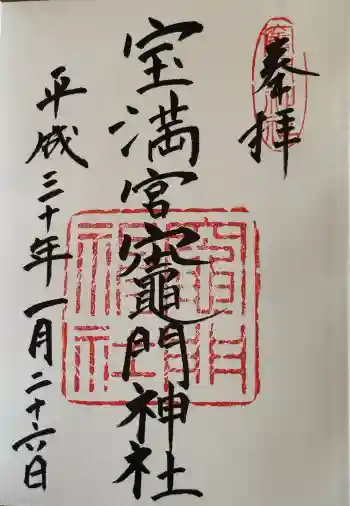 奉拝
宝満宮竈門神社
平成三十年一月二十六日